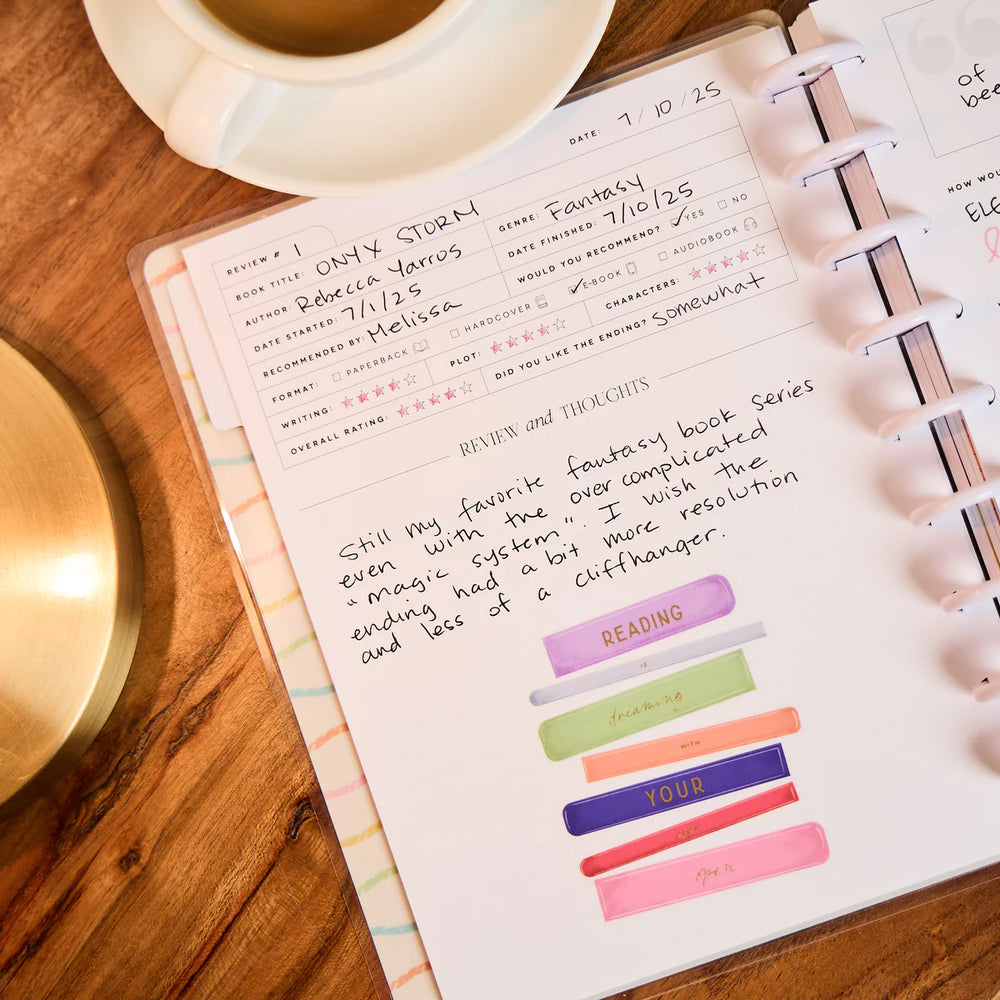 DATE: 7/10/25
REVIEW # 1
BOOK TITLE: ONYX STORM
GENRE: Fantasy
AUTHOR: Rebecca Yarros
DATE FINISHED: 7/10/25
DATE STARTED: 7/1/25
WOULD YOU RECOMMEND? YES NO
RECOMMENDED BY: Melissa
FORMAT: PAPERBACK HARDCOVER E-BOOK AUDIOBOOK
WRITING: PLOT: CHARACTERS:
OVERALL RATING: DID YOU LIKE THE ENDING? somewhat
REVIEW and THOUGHTS
Still my favorite fantasy book series
even with the over complicated
"magic system". I wish the
ending had a bit more resolution
and less of a cliffhanger.
READING
IS
dreaming
WITH
YOUR
EYES
open
of
bee
HOW WOU
ELE